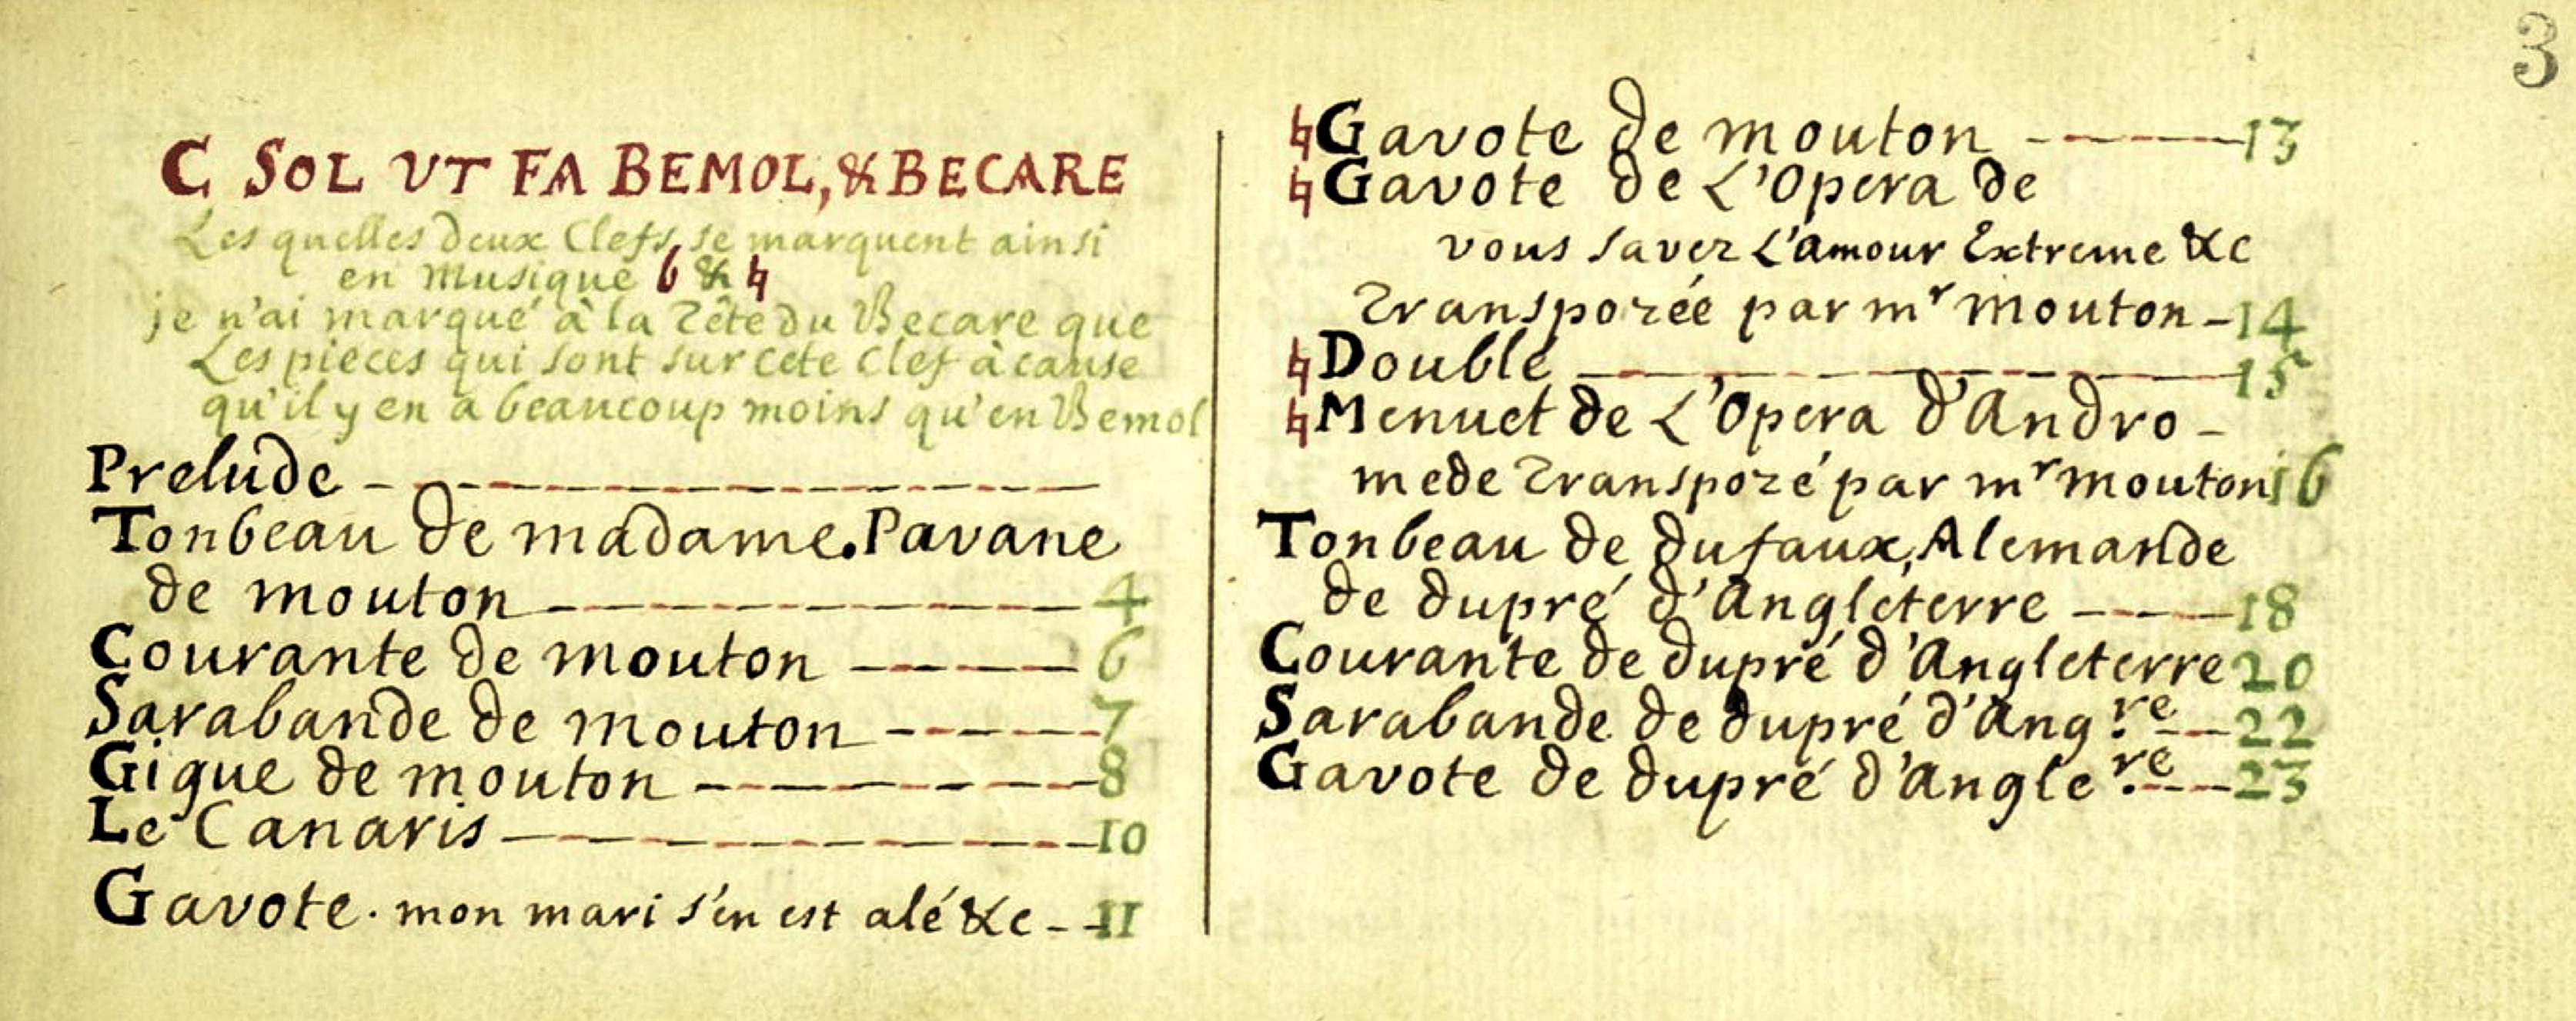 3
C SOL VT FA BEMOL, & BECARE
Les quelles deux Clefs, se marquent ainsi
en Musique b & ♮
je n'ai marqué à la Tête du Becare que
Les pieces qui sont sur cete Clef à cause
qu'il y en a beaucoup moins qu'en Bemol
Prelude
Tonbeau de madame. Pavane
de mouton 4
Courante de mouton 6
Sarabande de mouton 7
Gigue de mouton 8
Le Canaris 10
Gavote. mon mari s'en est alé &c 11
♮ Gavote de mouton 13
♮ Gavote de L'Opera de
vous saver L'amour Extreme &c
Transpozée par mr mouton 14
♮ Double 15
♮ Menuet de L'Opera d'Andro-
mede Transpozé par mr mouton 16
Tonbeau de dufaux, Alemande
de dupré d'Angleterre 18
Courante de dupré d'Angleterre 20
Sarabande de dupré d'Ang.re 22
Gavote de dupré d'Angle.re 23